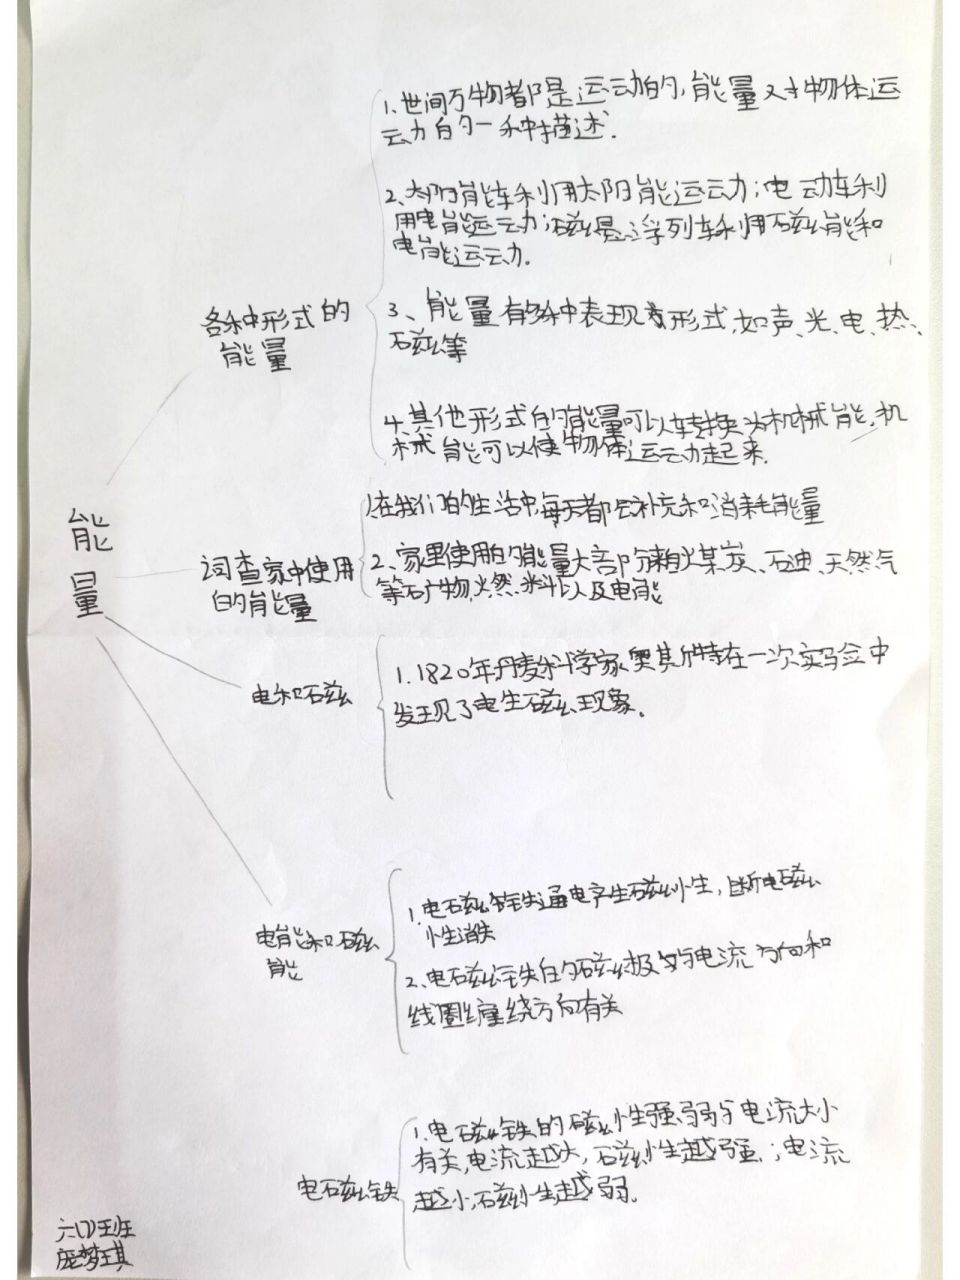 能
量
各种形式的
能量
1.世间万物都是运动的,能量对物体运
动的一种描述.
2.太阳能车利用太阳能运动;电动车利
用电能运动;磁悬浮列车利用磁能和
电能运动.
3、能量有多种表现形式,如声、光、电、热、
磁等
4.其他形式的能量可以转换为机械能,机
械能可以使物体运动起来.
调查家中使用
的能量
1.在我们的生活中,每天都会补充和消耗能量
2、家里使用的能量大部分来自煤炭、石油、天然气
等矿物燃料以及电能
电和磁
1.1820年丹麦科学家奥斯特在一次实验中
发现了电生磁现象.
电能和磁
能
1.电磁铁通电产生磁性,断电磁
性消失
2.电磁铁的磁极与电流方向和
线圈缠绕方向有关
电磁铁
1.电磁铁的磁性强弱与电流大小
有关,电流越大,磁性越强;电流
越小,磁性越弱.
六(1)班
庞梦琪